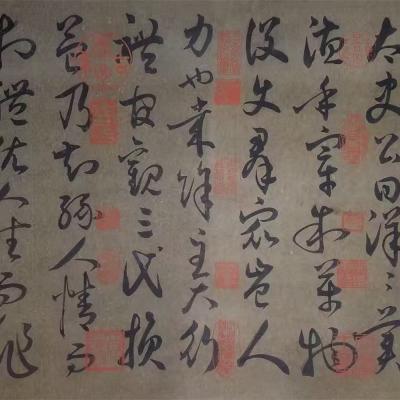 太史公曰洋〻美
德乎宰制萬物
役使群眾豈人
力也哉餘至大行
禮官觀三代損
益乃知緣人情而
制禮依人性而作